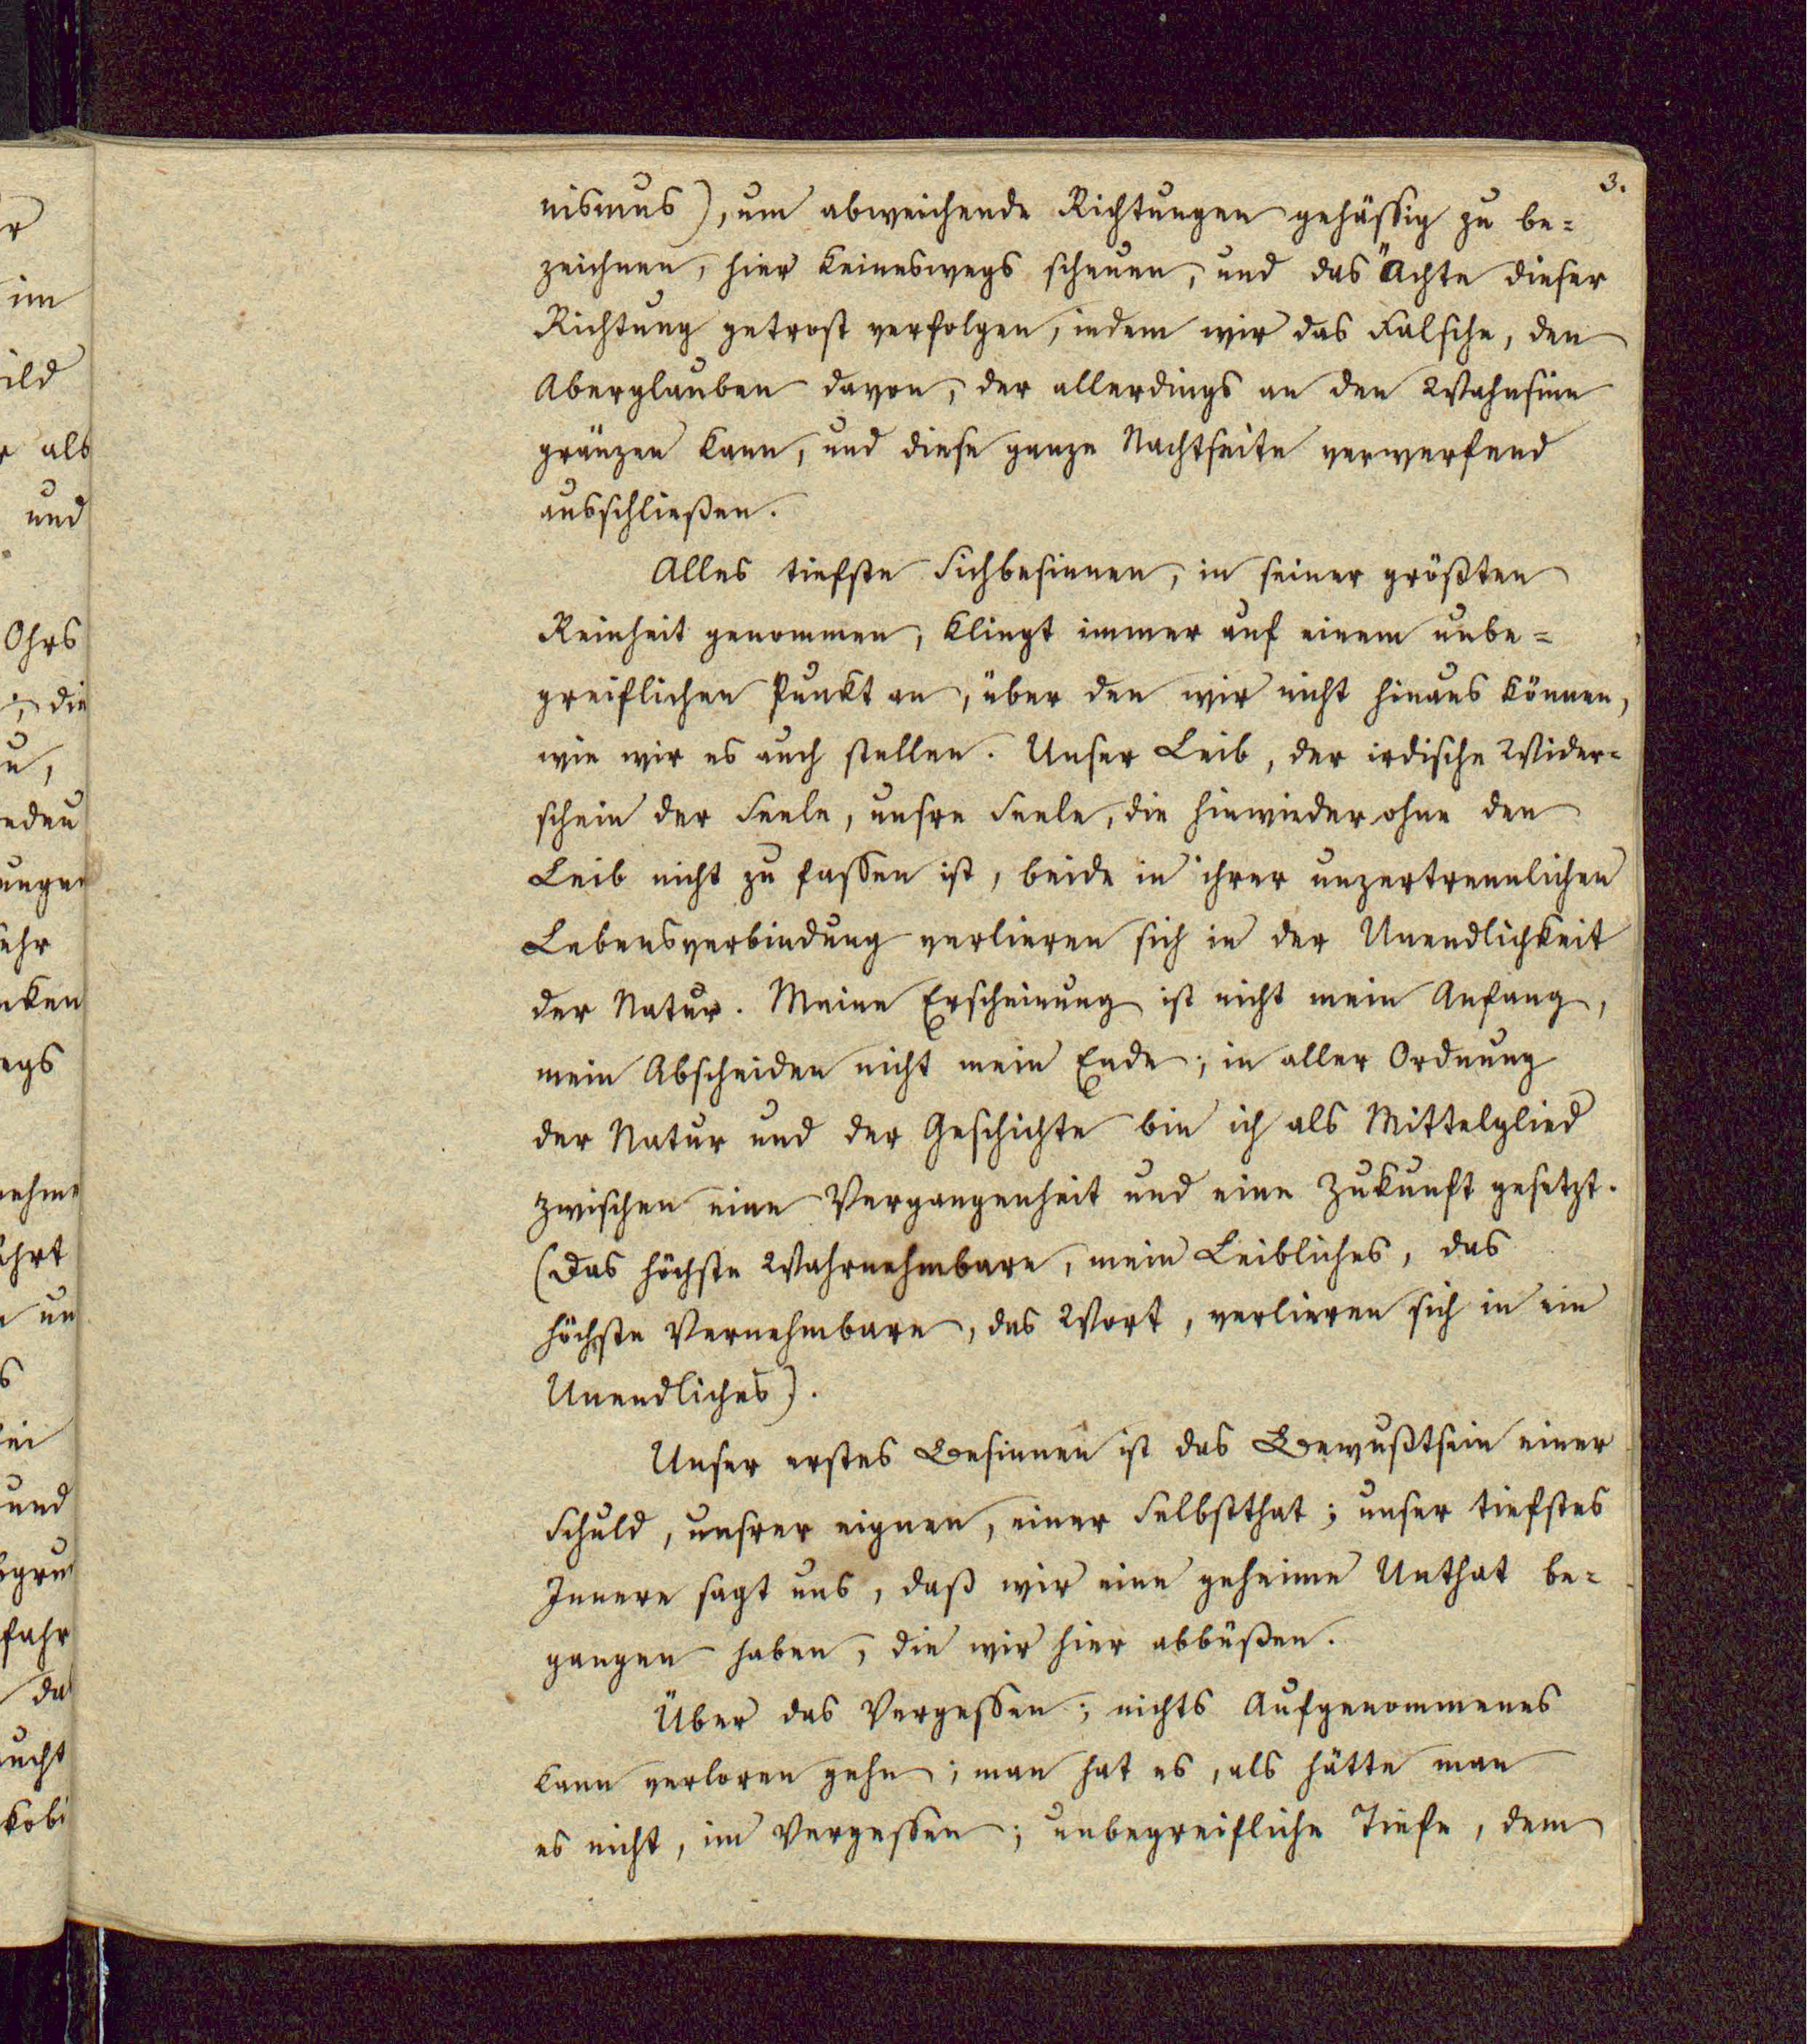 3.
nismus), um abweichende Richtungen gehässig zu be=
zeichnen, hier keineswegs scheuen, und das Ächte dieser
Richtung getrost verfolgen, indem wir das Falsche, den
Aberglauben davon, der allerdings an den Wahnsinn
gränzen kann, und diese ganze Nachtseite verwerfend
ausschließen.
Alles tiefste Sichbesinnen, in seiner größten
Reinheit genommen, klingt immer auf einem unbe=
greiflichen Punkt an, über den wir nicht hinaus können,
wie wir es auch stellen. Unser Leib, der irdische Wider=
schein der Seele, unsre Seele, die hinwieder ohne den
Leib nicht zu fassen ist, beide in ihrer unzertrennlichen
Lebensverbindung verlieren sich in der Unendlichkeit
der Natur. Meine Erscheinung ist nicht mein Anfang,
mein Abscheiden nicht mein Ende; in aller Ordnung
der Natur und der Geschichte bin ich als Mittelglied
zwischen eine Vergangenheit und eine Zukunft gesetzt.
(Das höchste Wahrnehmbare, mein Leibliches, das
höchste Vernehmbare, das Wort, verlieren sich in ein
Unendliches).
Unser erstes Besinnen ist das Bewußtsein einer
Schuld, unsrer eignen, einer Selbstthat; unser tiefstes
Innere sagt uns, daß wir eine geheime Unthat be=
gangen haben, die wir hier abbüßen.
Über das Vergessen; nichts Aufgenommenes
kann verloren gehn; man hat es, als hätte man
es nicht, im Vergessen; unbegreifliche Tiefe, dem